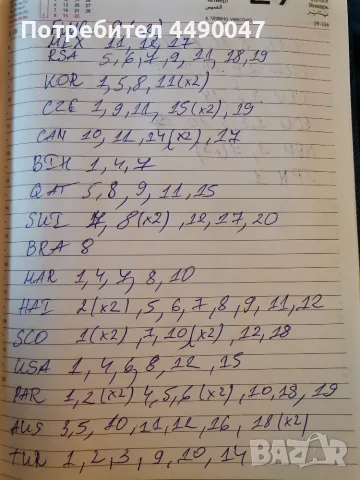 четвертък
29-336
s. Valerio vescovo
MEX 11, 12, 17
RSA 5, 6, 7, 9, 11, 18, 19
KOR 1, 5, 8, 11(x2)
CZE 1, 9, 11, 15(x2), 19
CAN 10, 11, 14(x2), 17
BIH 1, 4, 7
QAT 5, 8, 9, 11, 15
SUI 4, 8(x2), 12, 17, 20
BRA 8
MAR 1, 4, 7, 8, 10
HAI 2(x2), 5, 6, 7, 8, 9, 11, 12
SCO 1(x2), 7, 10(x2), 12, 18
USA 1, 4, 6, 8, 12, 15
PAR 1, 2(x2) 4, 5, 6(x2), 10, 18, 19
AUS 3, 5, 10, 11, 12, 16, 18(x2)
TUR 1, 2, 3, 9, 10, 14
Bazar